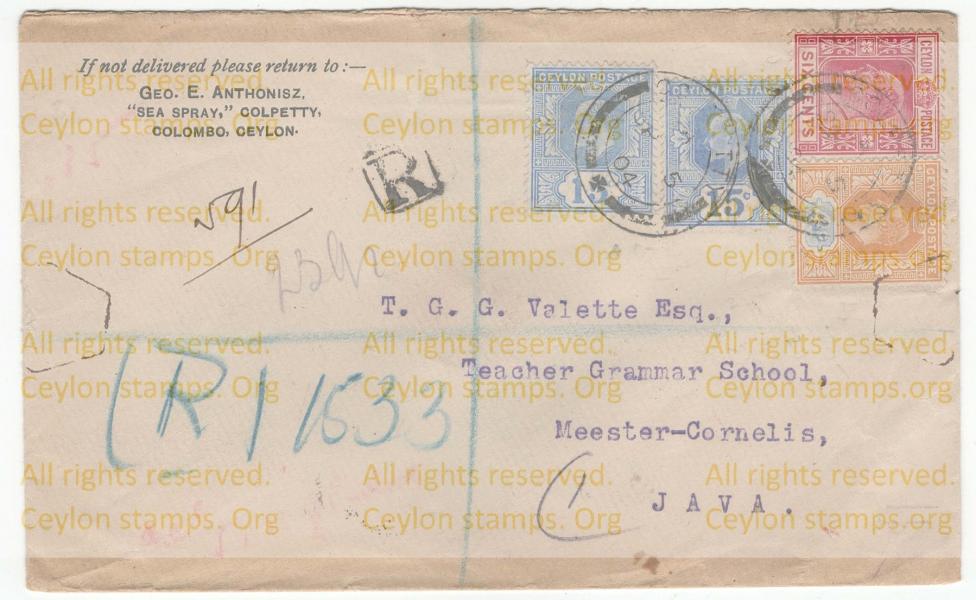 If not delivered please return to :—
GEO. E. ANTHONISZ,
"SEA SPRAY," COLPETTY,
COLOMBO, CEYLON.
CEYLON POSTAGE
15
CEYLON POSTAGE
15c
CEYLON POSTAGE
SIX CENTS
CEYLON POSTAGE
R
591
T. G. G. Valette Esq.,
Teacher Grammar School,
Meester-Cornelis,
JAVA.
R 1533
All rights reserved. All rights reserved. All rights reserved.
Ceylon stamps. Org Ceylon stamps. Org Ceylon stamps. Org
All rights reserved. All rights reserved. All rights reserved.
Ceylon stamps. Org Ceylon stamps. Org Ceylon stamps. Org
All rights reserved. All rights reserved. All rights reserved.
Ceylon stamps. Org Ceylon stamps. Org Ceylon stamps. Org
All rights reserved. All rights reserved. All rights reserved.
Ceylon stamps. Org Ceylon stamps. Org Ceylon stamps. Org